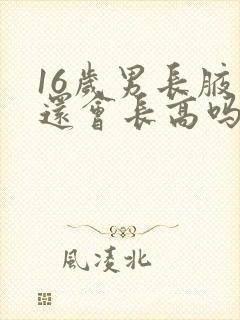 16歲男長腋
還會長高嗎
風淩北